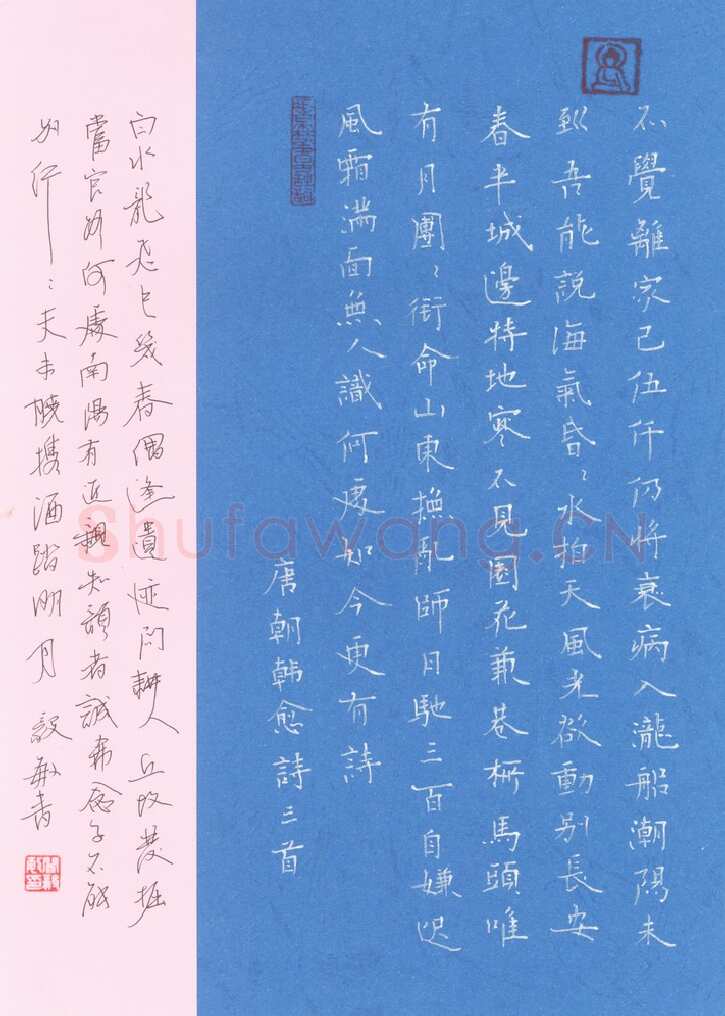 不覺離家已伍仟仍將衰病入瀧船潮陽未
到吾能說海氣昏〻水拍天風光欲動別長安
春半城邊特地寒不見園花兼巷柳馬頭唯
有月團〻銜命山東撫亂師日馳三百自嫌遲
風霜滿面無人識何處如今更有詩
唐朝韩愈詩三首
白水龍飛已幾春偶逢遺迹問耕人丘墳發掘
當官路何處南陽有近親知韻者誠希念子不能
別行〻天未曉攜酒踏明月 毅敏書
Shufawang.CN